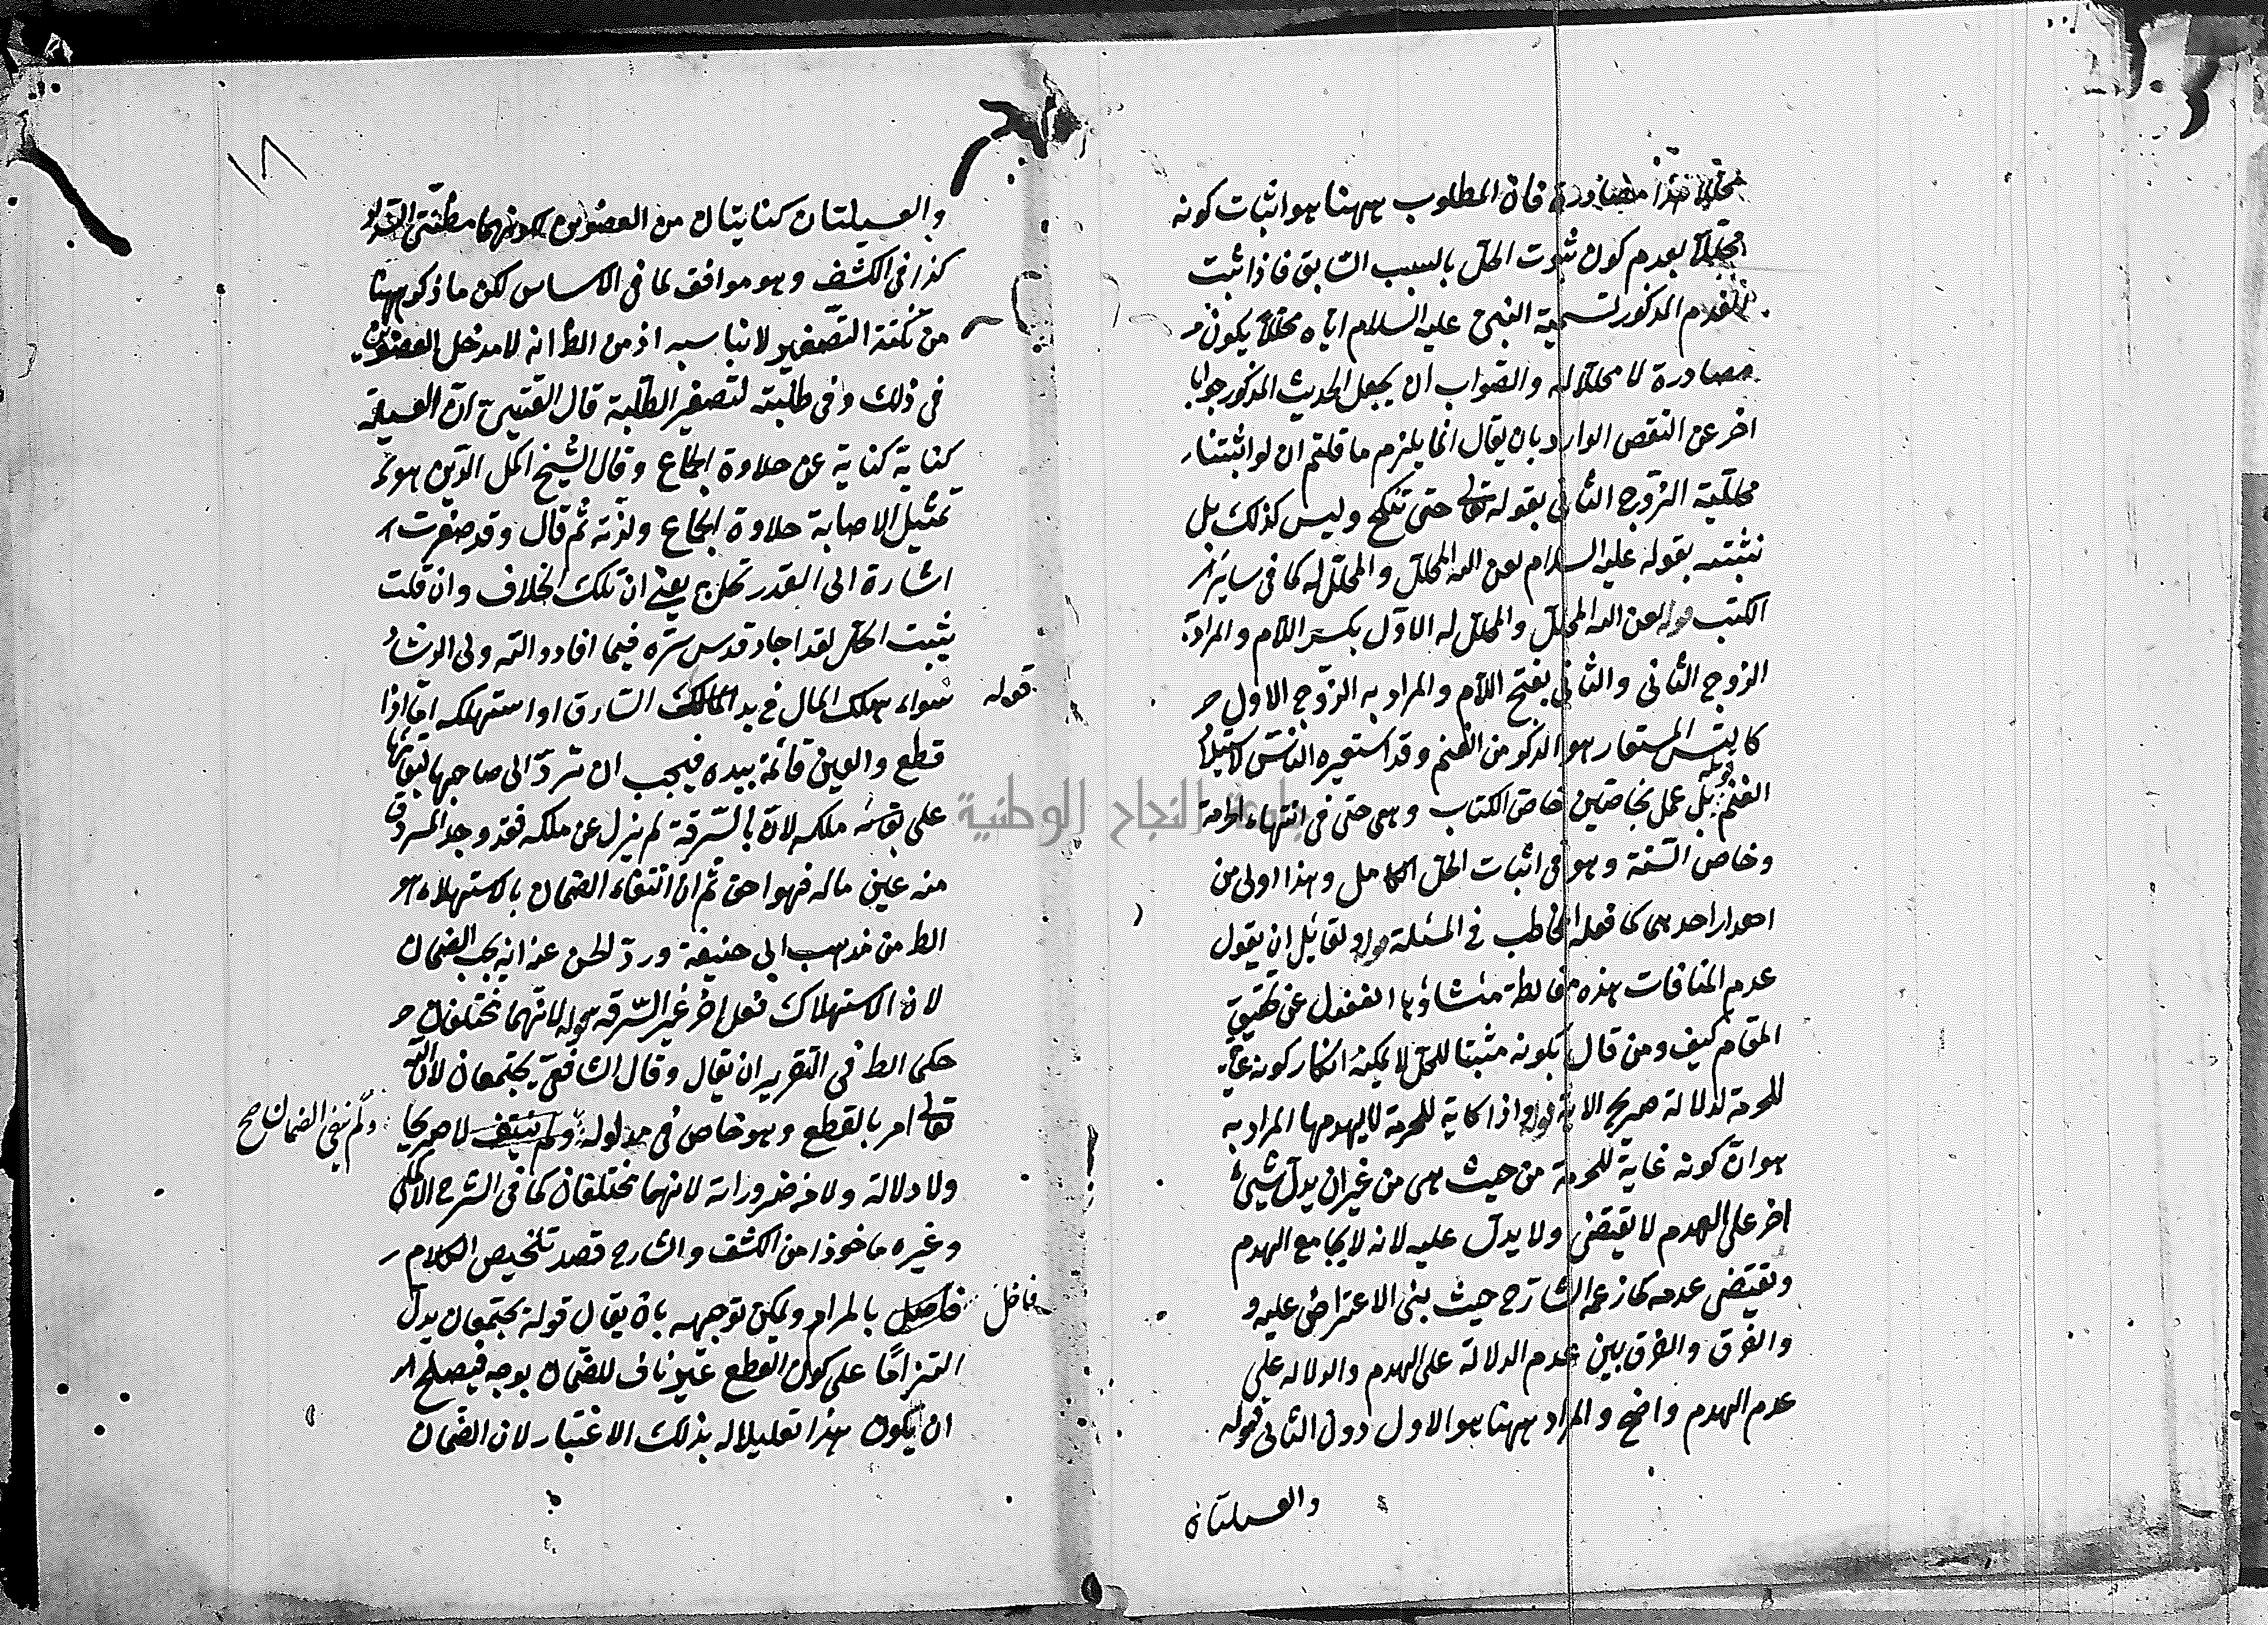 محللا فهذا مصادرة فان المطلوب ههنا هو اثبات كونه
محللا بعدم كون ثبوت الحل بالسبب السابق فاذا ثبت
العدم المذكور لتسمية النبى عليه السلام اياه محللا يكون
مصادرة لا محللا له والصواب ان يجعل الحديث المذكور جوابا
اخر عن النقص الوارد بان يقال انما يلزم ما قلتم ان لو اثبتنا
محللية الزوج الثانى بقوله تعالى حتى تنكح وليس كذلك بل
نثبته بقوله عليه السلام لعن الله المحلل والمحلل له كما فى ساير
الكتب قوله لعن الله المحلل والمحلل له الاول بكسر اللام والمراد
الزوج الثانى والثانى بفتح اللام والمراد به الزوج الاول
كا لتيس المستعار هو الذكر من الغنم وقد استعيره الناس لاستيلاد
الغنم قوله بل عمل بخاصين خاص الكتاب وهى حتى فى انتهاء الحرمة
وخاص السنة وهو فى اثبات الحل الكامل وهذا اولى من
احدهما كما فعله المخاطب فى المسئلة قوله ولقائل ان يقول
عدم المنافات هذه مغالطة منشاؤها الغفول عن تحقيق
المقام كيف ومن قال بكونه مثبتا للحل لا يمكنه انكار كونه غاية
للحرمة لدلالة صريح الاية قوله واذا كانت غاية للحرمة لا يهدمها المراد به
هو ان كونه غاية للحرمة من حيث هى من غير ان يدل شيئ
اخر على الهدم لا يقتضى ولا يدل عليه لانه لا يجامع الهدم
ويقتضى عدمه كما زعمه الشارح حيث بنى الاعتراض عليه و
والفرق والفرق بين عدم الدلالة على الهدم والدلاله على
عدم الهدم واضح والمراد ههنا هو الاول دون الثانى قوله
والعسيلتان
١٨
والعسيلتان كنايتان من العضوين لكونهما مظنتى
كذا فى الكشف وهو موافق لما فى الاساس لكن ما ذكر ههنا
من نكتة التصغير لا يناسبه اذ من الظ انه لا مدخل للعضوين
فى ذلك وفى طلبته لتصغير الطلبة قال القتيبى ان العسيلة
كناية كناية عن حلاوة الجماع وقال الشيخ اكمل الدين هو
تمثيل لاصابة حلاوة الجماع ولذته ثم قال وقد صغرت
اشارة الى القدر يعنى ان تلك الخلاف وان قلت
يثبت الحل لقد اجاد قدس سره فيما افاد والله ولى الرشاد
قوله سواء هلك المال فى يد المالك السارق او استهلكه اما اذا
قطع والعين قائمة بيده فيجب ان ترد الى صاحبها لبقائها
على بقائه ملكه لان بالسرقة لم يزل عن ملكه فقد وجد المسروق
منه عين ماله فهو احق ثم ان انتفاء الضمان بالاستهلاك هو
الظ من مذهب ابى حنيفة وردّ الحسن عنه انه يجب الضمان
لان الاستهلاك فعل اخر غير السرقه قوله لانهما مختلفان
حكما الظ فى التقرير ان يقال وقال الشافعى يجتمعان لان الله
تعالى امر بالقطع وهو خاص فى مدلوله ولم ينتف لا صريحا
ولم ينفى الضمان صح
ولا دلالة ولا ضرورة لانهما مختلفان كما فى الشرح الاكملى
وغيره ماخوذا من الكشف والشارح قصد تلخيص الكلام
فاخل بالمرام ويمكن توجيهه بان يقال قوله يجتمعان يدل
التزاما على كون القطع غير ناف للضمان بوجه فيصلح
ان يكون هذا تعليلا له بذلك الاعتبار لان الضمان
جامعة النجاح الوطنية